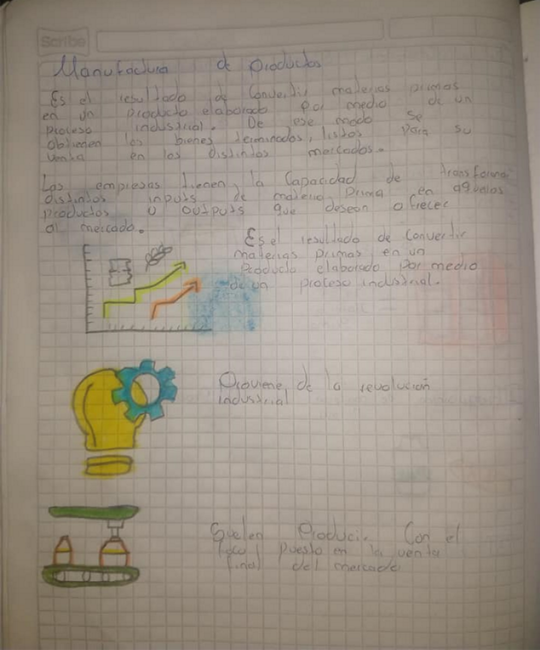 Scribe
Manufactura de Productos
Es el resultado de Convertir materias primas
en un producto elaborado Por medio de un
proceso industrial. De ese modo se
obtienen los bienes terminados, listos para su
venta en los distintos mercados.
Las empresas tienen la Capacidad de transformar
distintos inputs de materia Prima en aquellos
productos u outputs que desean ofrecer
al mercado.
Es el resultado de Convertir
materias primas en un
Producto elaborado Por medio
de un proceso industrial.
Proviene de la revolución
industrial
Suelen Producir Con el
foco puesto en la venta
final del mercado